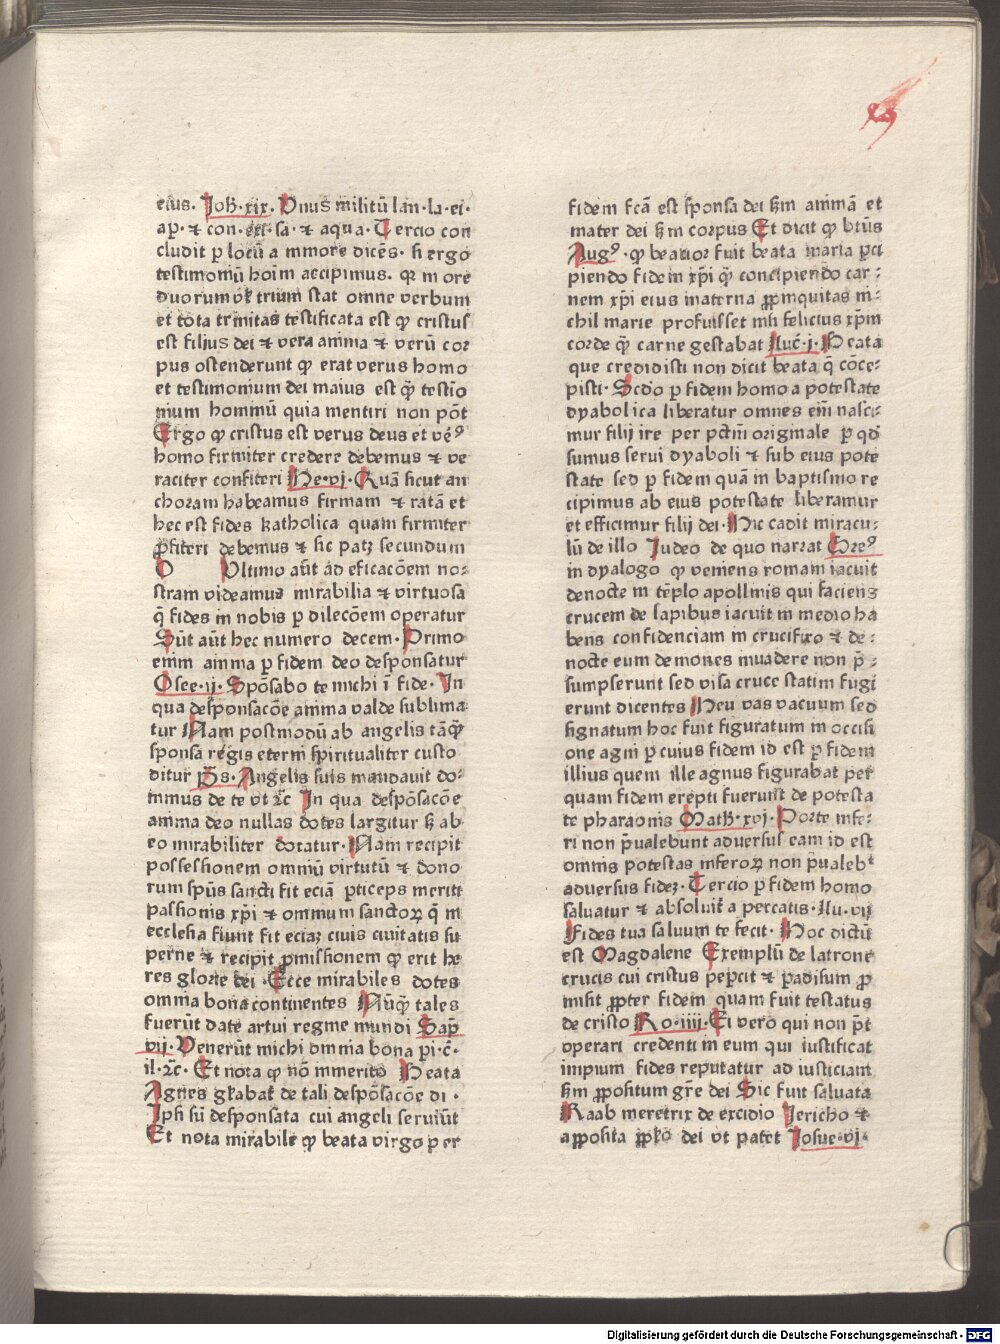 eius. Joh. xix. Vnus militū lan. la. ei.
ap. ⁊ con. exi. sa. ⁊ aqua. Tercio con
cludit p locū a minore dicēs. si ergo
testimoniū hoim accipimus. qr in ore
duorum vl trium stat omne verbum
et tota trinitas testificata est qꝫ cristus
est filius dei ⁊ vera anima ⁊ verū cor
pus ostenderunt qꝫ erat verus homo
et testimonium dei maius est qꝫ testīo
nium hominū quia mentiri non pōt
Ergo qꝫ cristus est verus deus et vē⁹
homo firmiter credere debemus ⁊ ve
raciter confiteri He. vj. Quā sicut an
choram habeamus firmam ⁊ ratā et
hec est fides katholica quam firmiter
ꝓfiteri debemus ⁊ sic patꝫ secundum
O Vltimo aūt ad eficacōem no:
stram videamus mirabilia ⁊ virtuosa
q̄ fides in nobis p dilecōem operatur
Sūt aūt hec numero decem. Primo
enim anima p fidem deo desponsatur
Osee. ij. Spōsabo te michi ī fide. In
qua desponsacōe anima valde sublima:
tur Nam postmodū ab angelis tāqꝫ
sponsa regis eterni spiritualiter custo
ditur ps. Angelis suis mandauit do:
minus de te vt ⁊c In qua despōsacōe
anima deo nullas dotes largitur sꝫ ab
eo mirabiliter dotatur. Nam recipit
possessionem omniū virtutū ⁊ dono
rum spūs sancti fit eciā pticeps meriti
passionis xp̄i ⁊ omnium sanctoꝝ q̄ in
ecclesia fiunt fit eciaꝫ ciuis ciuitatis su
perne ⁊ recipit ꝓmissionem qꝫ erit he
res glorie dei. Ecce mirabiles dotes
omnia bona continentes Nūqꝫ tales
fuerūt date artui regine mundi Sap
vij. Venerūt michi omnia bona pi. c̄.
il. ⁊c. Et nota qꝫ nō inmerito Beata
Agnes gl̄abat̄ de tali despōsacōe di.
Ipsi sū desponsata cui angeli seruiūt
Et nota mirabile qꝫ beata virgo per
fidem fcā est sponsa dei sꝫm animā et
mater dei sꝫm corpus Et dicit qꝫ btūs
Aug⁹. qꝫ beatior fuit beata maria pci
piendo fidem xp̄i qꝫ concipiendo car:
nem xp̄i eius materna ꝓpinquitas ni:
chil marie profuisset nisi felicius xp̄m
corde qꝫ carne gestabat Luc. j. Beata
que credidisti non dicit beata q̄ cōce:
pisti. Scdo p fidem homo a potestate
dyabolica liberatur omnes em̄ nasci:
mur filij ire per pctm̄ originale p qd
sumus serui dyaboli ⁊ sub eius pote
state sed p fidem quā in baptismo re
cipimus ab eius potestate liberamur
et efficimur filij dei. Hic cadit miracu:
lū de illo Iudeo de quo narrat Gre⁹
in dyalogo qꝫ veniens romam iacuit
denocte in tēplo apollinis qui faciens
crucem de lapibus iacuit in medio ha
bens confidenciam in crucifixo ⁊ de:
nocte eum demones inuadere non p̄:
sumpserunt sed visa cruce statim fugi
erunt dicentes Heu vas vacuum sed
signatum hoc fuit figuratum in occisi
one agni p cuius fidem id est p fidem
illius quem ille agnus figurabat per
quam fidem erepti fuerunt de potesta
te pharaonis Math. xvj. Porte infe:
ri non p̄ualebunt aduersus eam id est
omnis potestas inferoꝝ non p̄ualebᵗ
aduersus fideꝫ. Tercio p fidem homo
saluatur ⁊ absoluit̄ a peccatis. Lu. vij
Fides tua saluum te fecit. Hoc dictū
est Magdalene Exemplū de latrone
crucis cui cristus pepcit ⁊ padisum ꝓ
misit ꝓpter fidem quam fuit testatus
de cristo Ro. iiij. Ei vero qui non pt̄
operari credenti in eum qui iustificat
impium fides reputatur ad iusticiam
sꝫm ꝓpositum gr̄e dei Sic fuit saluata
Raab meretrix de excidio Jericho ⁊
apposita pplo dei vt patet Josue. vj.
Digitalisierung gefördert durch die Deutsche Forschungsgemeinschaft - DFG